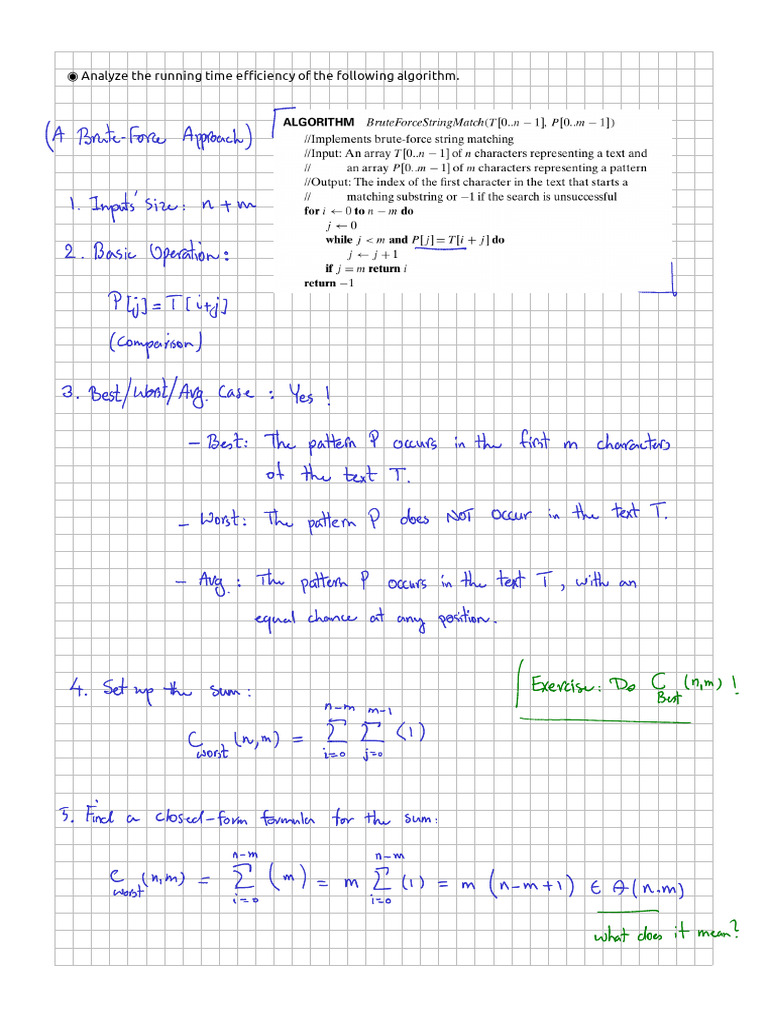 ◉ Analyze the running time efficiency of the following algorithm.
(A Brute-Force Approach)
ALGORITHM BruteForceStringMatch(T[0..n − 1], P[0..m − 1])
//Implements brute-force string matching
//Input: An array T[0..n − 1] of n characters representing a text and
// an array P[0..m − 1] of m characters representing a pattern
//Output: The index of the first character in the text that starts a
// matching substring or −1 if the search is unsuccessful
for i ← 0 to n − m do
j ← 0
while j < m and P[j] = T[i + j] do
j ← j + 1
if j = m return i
return −1
1. Inputs' size: n + m
2. Basic Operation:
P[j] = T[i+j]
(Comparison)
3. Best/Worst/Avg. Case : Yes !
– Best: The pattern P occurs in the first m characters
of the text T.
– Worst: The pattern P does NOT occur in the text T.
– Avg. : The pattern P occurs in the text T, with an
equal chance at any position.
4. Set up the sum :
Exercise: Do C_Best (n,m) !
C_worst (n,m) = ∑_{i=0}^{n-m} ∑_{j=0}^{m-1} (1)
5. Find a closed-form formula for the sum:
C_worst (n,m) = ∑_{i=0}^{n-m} (m) = m ∑_{i=0}^{n-m} (1) = m (n-m+1) ∈ Θ(n.m)
what does it mean?